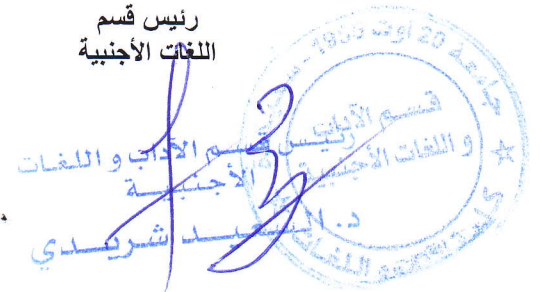 رئيس قسم
اللغات الأجنبية
جامعة 20 أوت 1955 -
قسم الآداب
و اللغات الأجنبية
رئيس قسم الآداب و اللغات
الأجنبية
د. السعيد شريدي